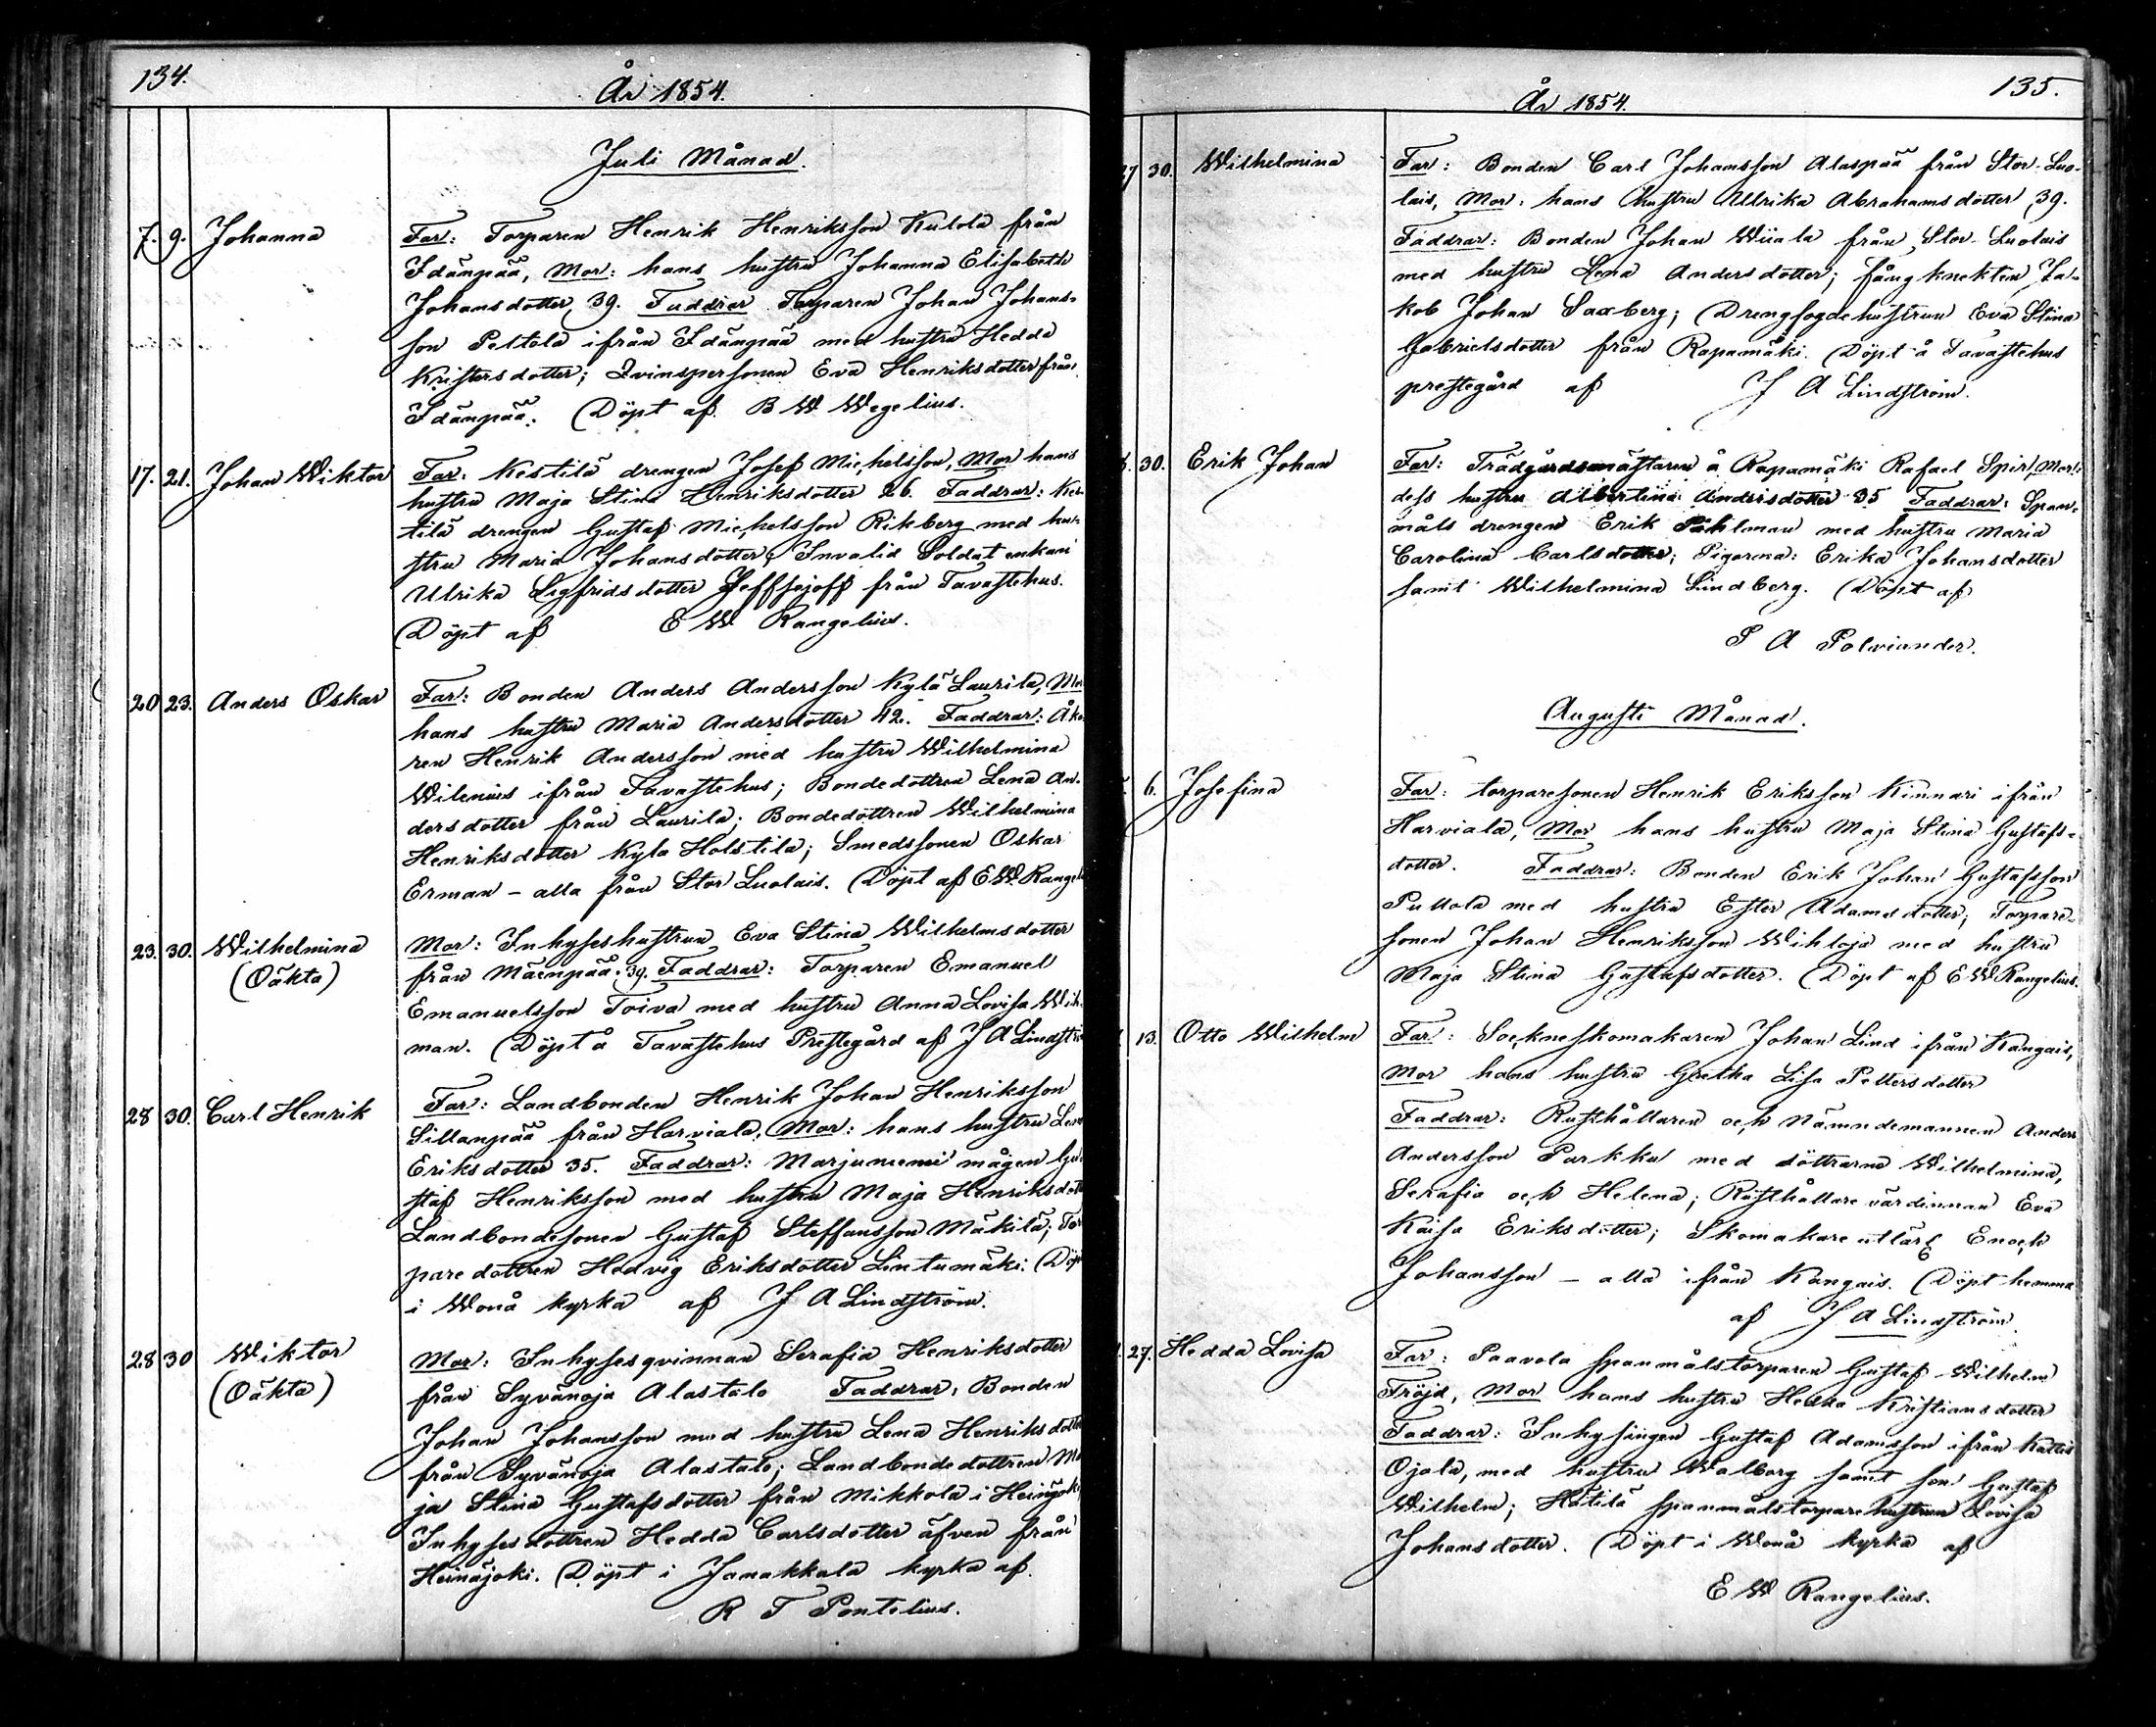 134.
År 1854.
Juli Månad.
7. 9. Johanna
Far: Torparen Henrik Henriksson Kulola från
Idänpää, Mor: hans hustru Johanna Elisabeth
Johansdotter, 39. Faddrar Torparen Johan Johans-
son Peltola ifrån Idänpää med hustru Hedda
Kristersdotter; Qvinspersonen Eva Henriksdotter från
Idänpää. Döpt af B W Wegelius.
17. 21. Johan Wiktor
Far: Kestilä drengen Josef Michelsson, Mor hans
hustru Maja Stina Henriksdotter 26. Faddrar: Kes-
tilä drengen Gustaf Michelsson Rikberg med hu-
stru Maria Johansdotter; Invalid Soldat enkan
Ulrika Sigfridsdotter från Tavastehus.
Döpt af E W Rangelius.
20 23. Anders Oskar
Far: Bonden Anders Andersson Kylä Laurila, Mor
hans hustru Maria Andersdotter 42. Faddrar: Åka
ren Henrik Andersson med hustru Wilhelmina
Wilenius ifrån Tavastehus; Bondedottren Lena An-
dersdotter från Laurila; Bondedottren Wilhelmina
Henriksdotter Kyla Holstila; Smedssonen Oskar
Erman – alla från Stor Luolais. Döpt af E W. Rangeli
23. 30. Wilhelmina
(Oäkta)
Mor: Inhyseshustrun Eva Stina Wilhelmsdotter
från Mäenpää. 39. Faddrar: Torparen Emanuel
Emanuelsson Toiva med hustru Anna Lovisa Wik
man. Döpt å Tavastehus Prestegård af J A Lindströ
28 30. Carl Henrik
Far: Landbonden Henrik Johan Henriksson
Sillanpää från Harviala, Mor: hans hustru Lena
Eriksdotter 35. Faddrar: Marjuniemi mågen Gu-
staf Henriksson med hustru Maja Henriksdott
Landbondesonen Gustaf Steffansson Mäkilä; Tor
paredottren Hedvig Eriksdotter Lintumäki. Döpt
i Wonå kyrka af J A Lindström.
28 30 Wiktor
(Oäkta)
Mor: Inhysesqvinnan Serafia Henriksdotter
från Syvänoja Alastalo Faddrar: Bonden
Johan Johansson med hustru Lena Henriksdotte
från Syvänoja Alastalo; Landbondedottren Ma
ja Stina Gustafsdotter från Mikkola i Heinäjoki
Inhysesdottren Hedda Carlsdotter äfven från
Heinäjoki. Döpt i Janakkala kyrka af
R T Pontelius.
135.
År 1854.
27 30. Wilhelmina
Far: Bonden Carl Johansson Alaspää från Stor-Luo-
lais, Mor: hans hustru Ullrika Abrahamsdotter, 39.
Faddrar: Bonden Johan Wiiala från Stor-Luolais
med hustru Lena Andersdotter; fångknekten Ja-
kob Johan Saxberg; Drengfogdehustrun Eva Stina
Gabrielsdotter från Rapamäki. Döpt å Tavastehus
prestegård af J A Lindström.
30. Erik Johan
Far: Trädgårdsmästaren å Rapamäki Rafael Spir, Mor:
dess hustru Albertina Andersdotter 35 Faddrar: Span-
måls drengen Erik Påhlman med hustru Maria
Carolina Carlsdotter; Pigorna: Erika Johansdotter
samt Wilhelmina Lindberg. Döpt af
P A Polviander.
Augusti Månad.
6. Josefina
Far: torparesonen Henrik Eriksson Kinnari ifrån
Harviala, Mor hans hustru Maja Stina Gustafs-
dotter. Faddrar: Bonden Erik Johan Gustafsson
Puttola med hustru Ester Adamsdotter; Torpare-
sonen Johan Henriksson Wihloja med hustru
Maja Stina Gustafsdotter. Döpt af E W Rangelius.
13. Otto Wilhelm
Far: Sockneskomakaren Johan Lind ifrån Kangais,
Mor hans hustru Gretha Lisa Pettersdotter
Faddrar: Rusthållaren och Nämndemannen Anders
Andersson Parkku med döttrarna Wilhelmina,
Serafia och Helena; Rusthållare värdinnan Eva
Kaisa Eriksdotter; Skomakare utlärl Enoch
Johansson – alla ifrån Kangais. Döpt hemma
af J A Lindström
27. Hedda Lovisa
Far: Paavola spanmålstorparen Gustaf Wilhelm
Tröjd, Mor hans hustru Hedda Kristiansdotter
Faddrar: Inhysingen Gustaf Adamsson ifrån Kattis
Ojala, med hustru Walborg samt son Gustaf
Wilhelm; Hätilä spanmålstorparehustrun Lovisa
Johansdotter. Döpt i Wonå kyrka af
E W Rangelius.